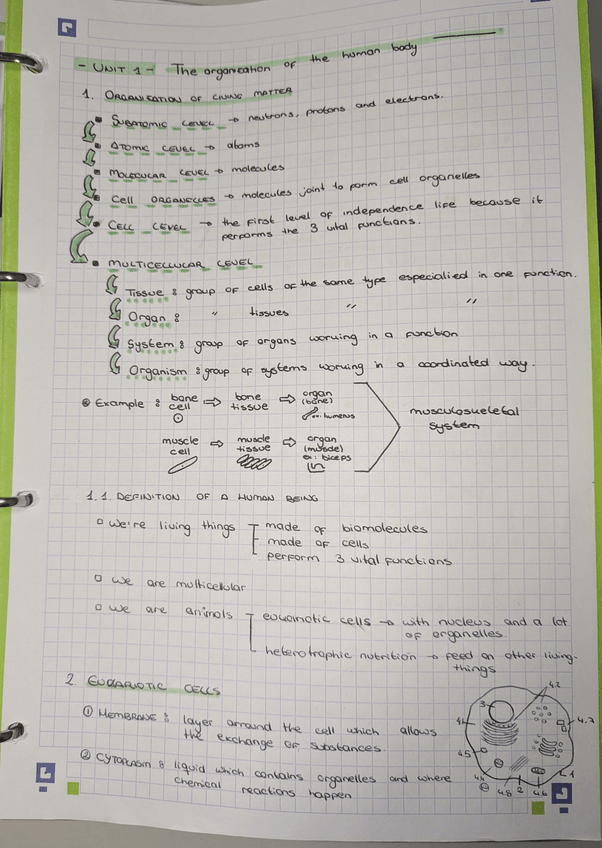 - UNIT 1 - The organisation of the human body
1. ORGANISATION OF LIVING MATTER
SUBATOMIC LEVEL → neutrons, protons and electrons.
ATOMIC LEVEL → atoms
MOLECULAR LEVEL → molecules
Cell ORGANELLES → molecules joint to form cell organelles
CELL LEVEL → the first level of independence life because it
performs the 3 vital functions.
MULTICELLULAR LEVEL
Tissue : group of cells of the same type especialied in one function.
Organ : " tissues " "
System : group of organs working in a function
Organism : group of systems working in a coordinated way.
Example : bone cell ⇒ bone tissue ⇒ organ (bone) ex: humerus
muscle cell ⇒ muscle tissue ⇒ organ (muscle) ex: biceps
musculoskeletal system
1.1 DEFINITION OF A HUMAN BEING
we're living things
made of biomolecules
made of cells
perform 3 vital functions
we are multicellular
we are animals
eucariotic cells → with nucleus and a lot
of organelles
heterotrophic nutrition → feed on other living-
things
2. EUCARIOTIC CELLS
① MEMBRANE : layer arround the cell which allows
the exchange of substances.
② CYTOPLASM : liquid which contains organelles and where
chemical reactions happen
4.2
3
4.1
4.7
4.5
1
4.4
4.8
2
4.6